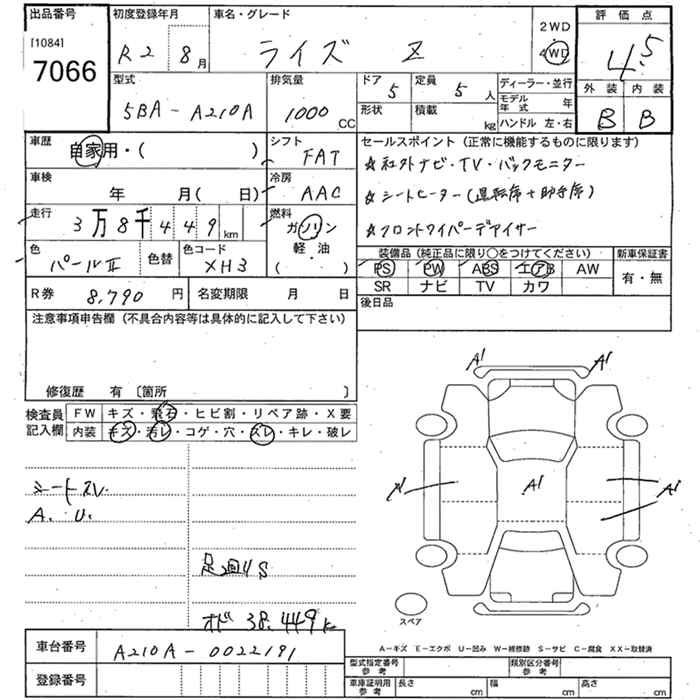 出品番号
[1084]
7066
初度登録年月
R2 8月
車名・グレード
ライズ Z
2WD
4WD
評価点
4.5
外装 内装
B B
型式
5BA-A210A
排気量
1000 CC
ドア 5
定員 5 人
形状
積載 kg
ディーラー・並行
モデル年式 年
ハンドル 左・右
車歴
自家用・( )
シフト
FAT
車検
年 月( 日)
冷房
AAC
走行
3万8千449km
燃料
ガソリン
軽・油
( )
色
パールII
色替
色コード
XH3
R券 8,790 円
名変期限 月 日
セールスポイント (正常に機能するものに限ります)
☆社外ナビ・TV・バックモニター
☆シートヒーター(運転席+助手席)
☆フロントワイパーデアイサー
装備品 (純正品に限り〇をつけてください)
新車保証書
PS PW ABS エアB AW
SR ナビ TV カワ
有・無
後日品
注意事項申告欄 (不具合内容等は具体的に記入して下さい)
修復歴 有 〔箇所 〕
検査員記入欄
FW キズ・飛石・ヒビ割・リペア跡・X要
内装 キズ・汚レ・コゲ・穴・スレ・キレ・破レ
シートスレ
A. U.
足廻りS
オド 38.449k
A1 A1
A1 A1 A1
スペア
A-キズ E-エクボ U-凹み W-補修跡 S-サビ C-腐食 XX-取替済
車台番号 A210A-0022191
登録番号
型式指定番号 参考
類別区分番号 参考
車庫証明用 参考
長さ cm 幅 cm 高さ cm